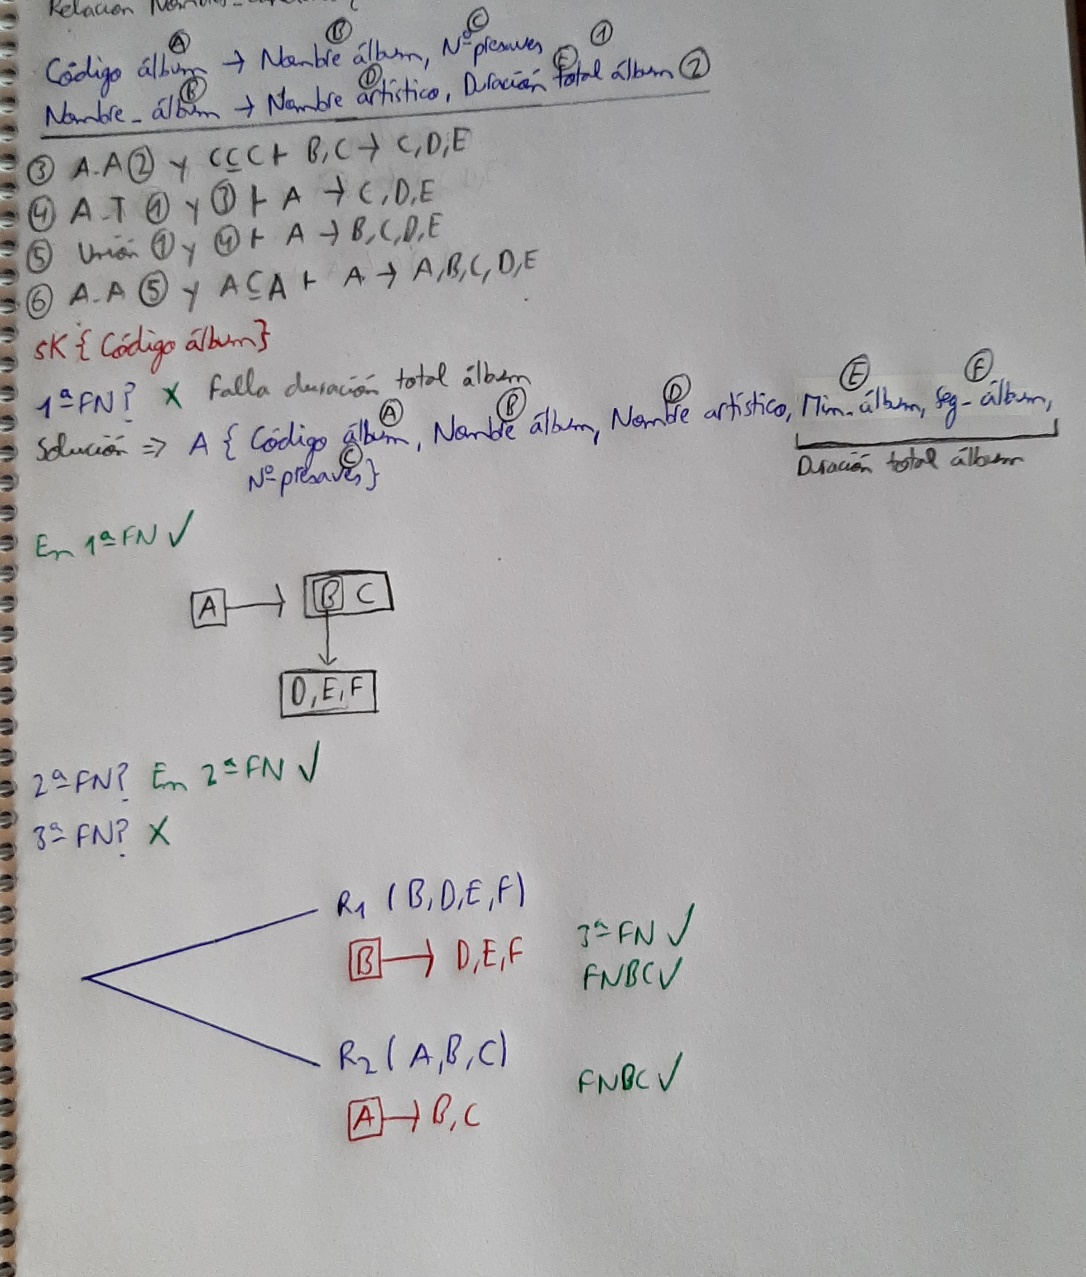 Relación
Ⓐ Ⓑ Ⓒ
Código álbum → Nombre álbum, Nº presaves ①
Ⓑ Ⓓ Ⓔ
Nombre_álbum → Nombre artístico, Duración total álbum ②
③ A.A ② y C⊆C ⊢ B,C → C,D,E
④ A.T ① y ③ ⊢ A → C,D,E
⑤ Unión ① y ④ ⊢ A → B,C,D,E
⑥ A.A ⑤ y A⊆A ⊢ A → A,B,C,D,E
SK {Código álbum}
1ªFN? X Falla duración total álbum
Ⓐ Ⓑ Ⓓ Ⓔ Ⓕ
Solución ⇒ A { Código álbum, Nombre álbum, Nombre artístico, Min_álbum, Seg_álbum,
Ⓒ
Nº presaves}
Duración total álbum
En 1ªFN ✓
A → B C
D,E,F
2ªFN? En 2ªFN ✓
3ªFN? X
R1 (B,D,E,F)
B → D,E,F
3ªFN ✓
FNBC ✓
R2 (A,B,C)
A → B,C
FNBC ✓